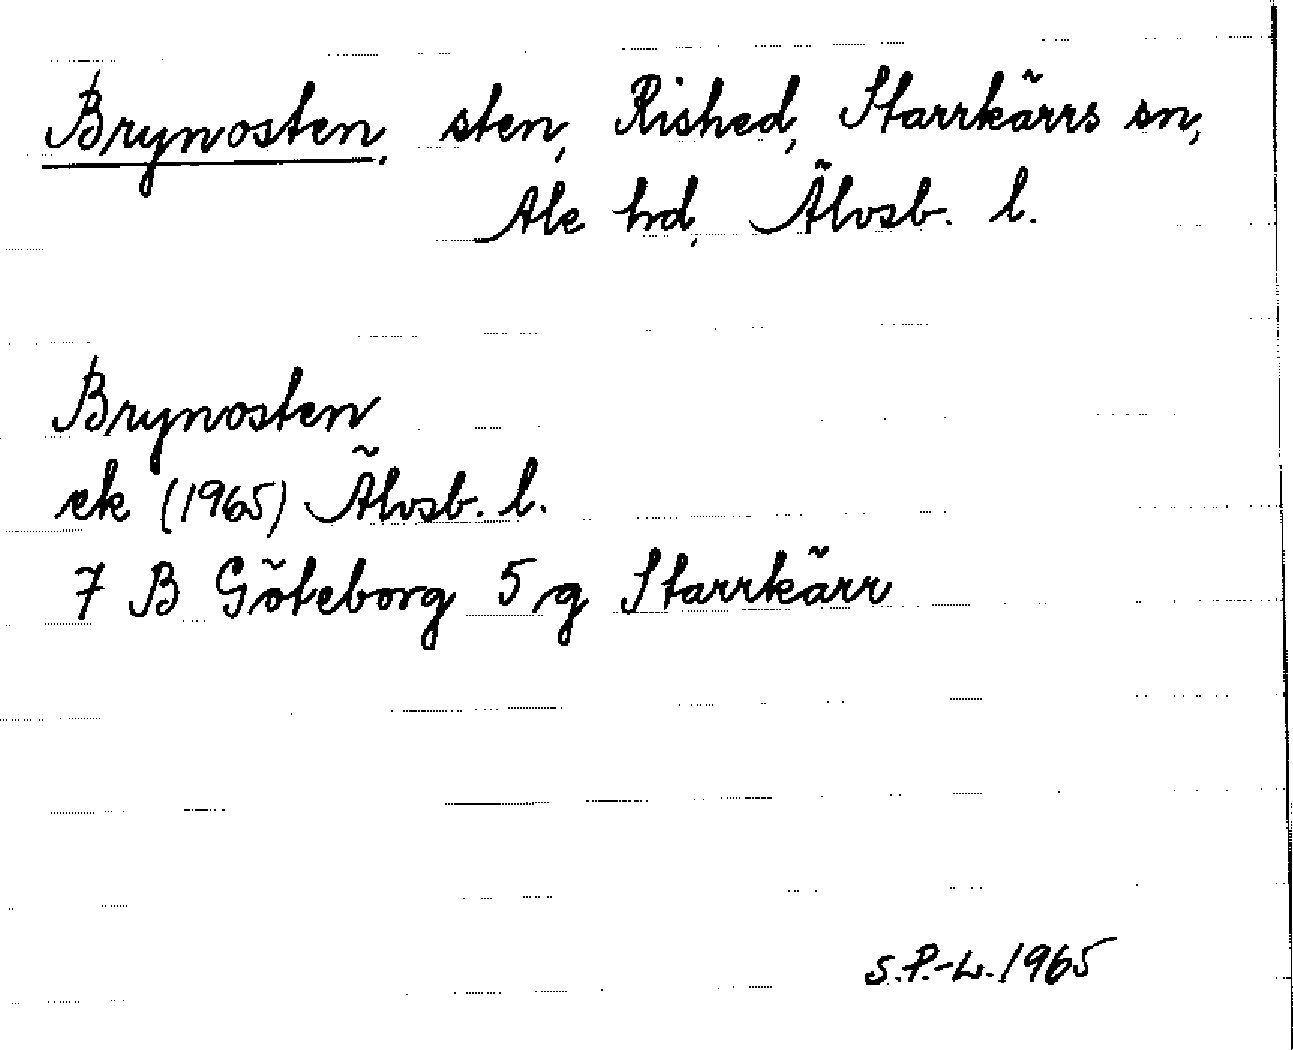 Brynosten, sten, Rished, Starrkärrs sn,
Ale hd, Älvsb. l.
Brynosten
ek (1965) Älvsb. l.
7 B Göteborg 5 g Starrkärr
S.P.-L. 1965